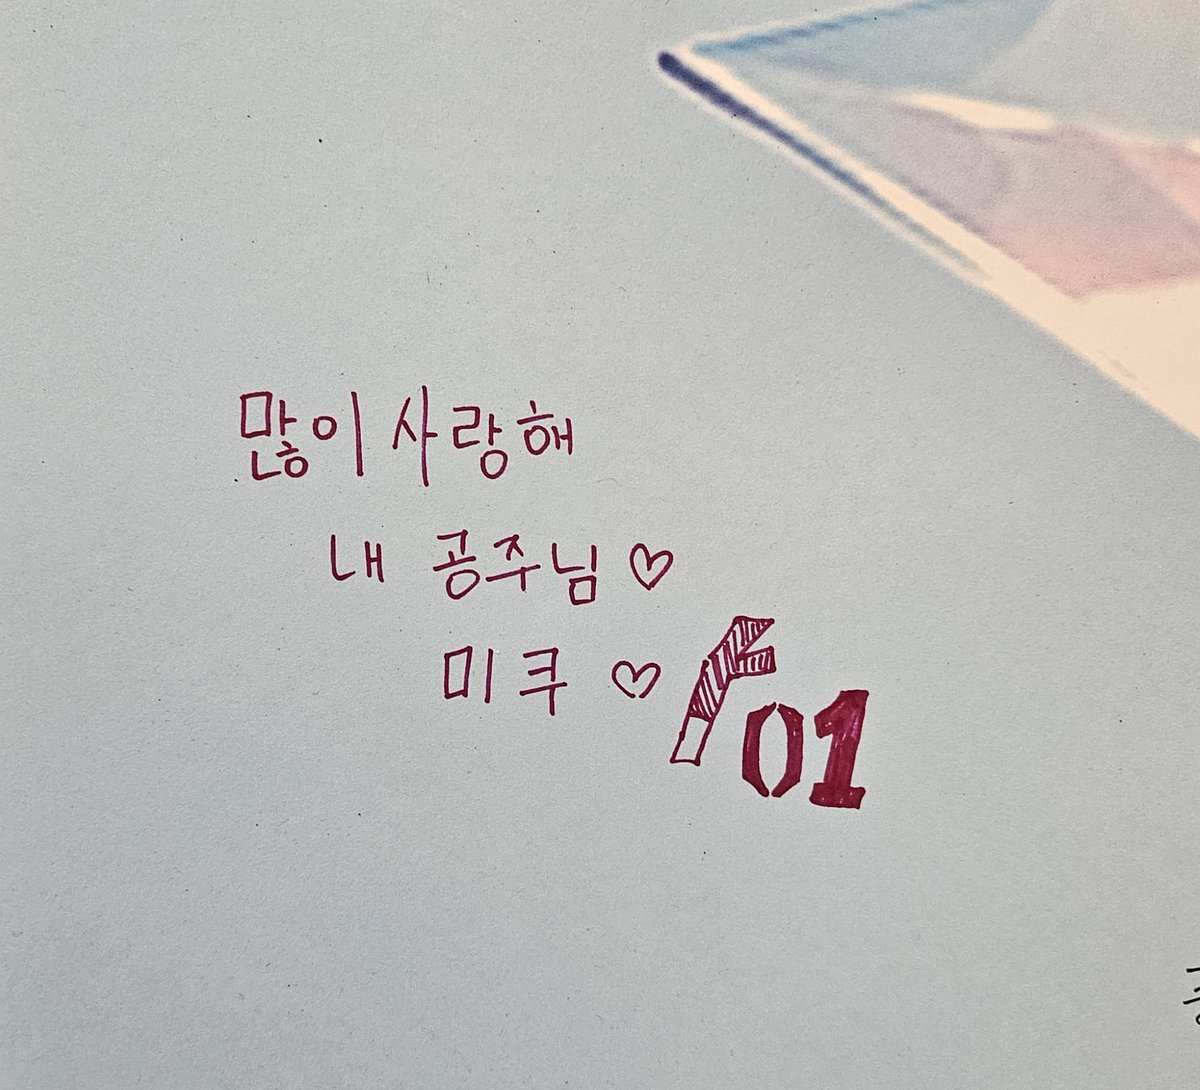 많이 사랑해
내 공주님♡
미쿠 ♡
01